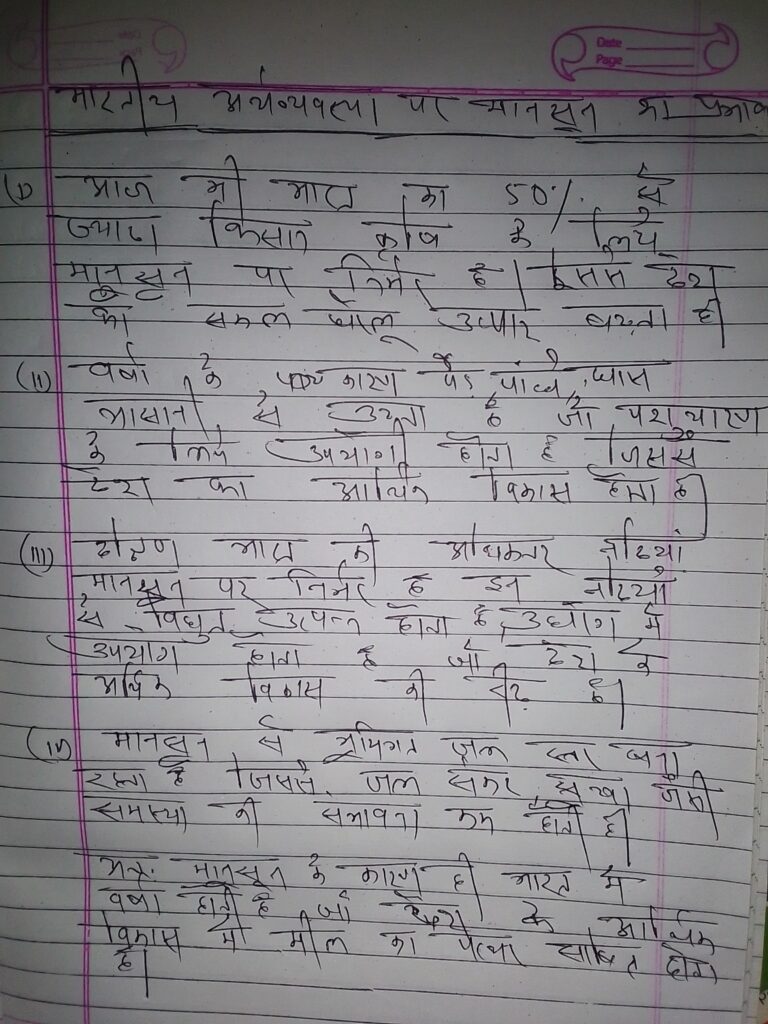 Date
Page
भारतीय अर्थव्यवस्था पर मानसून का प्रभाव
(I) आज भी भारत का 50% से
ज्यादा किसान कृषि के लिये
मानसून पर निर्भर है। इससे देश
का सकल घरेलू उत्पाद बढता है।
(II) वर्षा के कारण पेड़ पौधे, घास
आसानी से उगता है जो पशुचारण
के लिये उपयोगी होता है जिससे
देश का आर्थिक विकास होता है।
(III) दक्षिण भारत की अधिकतर नदियां
मानसून पर निर्भर है इन नदियों
से विधुत उत्पन्न होता है, उद्योग में
उपयोग होता है जो देश के
आर्थिक विकास की रीढ़ है।
(IV) मानसून से भूमिगत जल स्तर बना
रहता है जिससे जल संकट, सूखा जैसी
समस्या की संभावना कम होती है।
अतः मानसून के कारण ही भारत में
वर्षा होती है जो देश के आर्थिक
विकास में मील का पत्थर साबित होता
है।